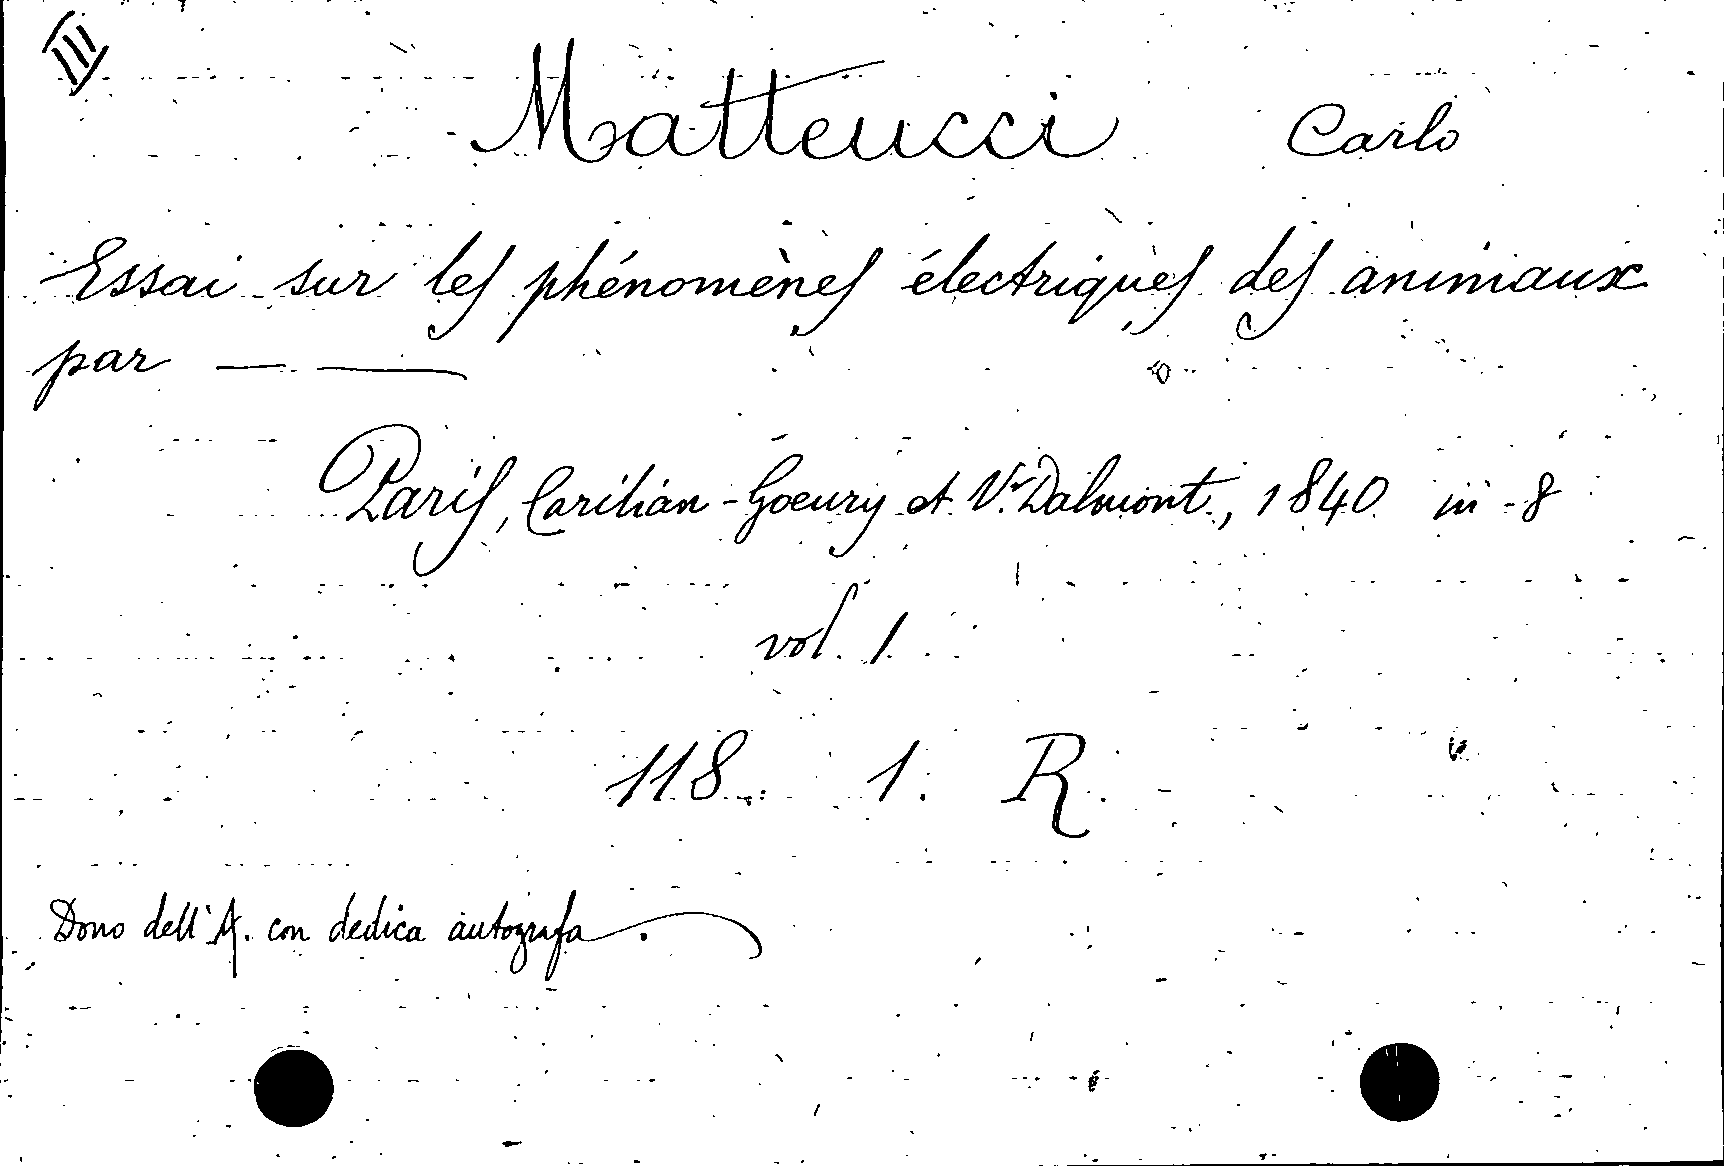 III
Matteucci Carlo
Essai sur les phénomènes électriques des animaux
par — —
Paris, Carilian-Goeury et Vr Dalmont, 1840 in-8
vol. 1
118. 1. R.
Dono dell'A. con dedica autografa.